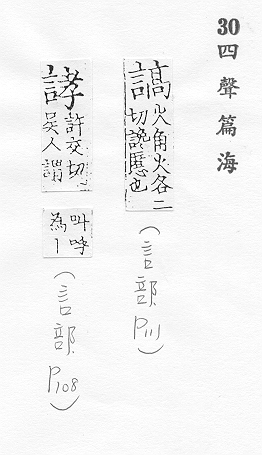 30四聲篇海
謞火角火各二
切讒慝也
(言部
P111)
誟許交切
吴人謂
叫呼
為丨
(言部
P108)